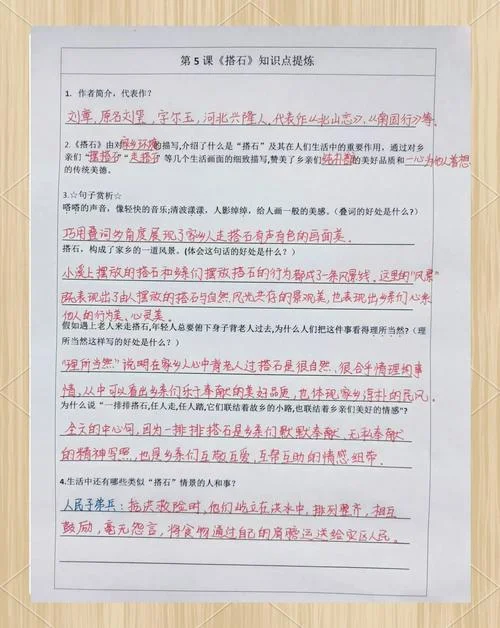 第 5 课《搭石》知识点提炼
1．作者简介，代表作？
刘章，原名刘玺，字尔玉，河北兴隆人。代表作《北山恋》、《南国行》等。
2.《搭石》由对家乡环境的描写,介绍了什么是“搭石”及其在人们生活中的重要作用，通过对乡
亲们“摆搭石”“走搭石”等几个生活画面的细致描写,赞美了乡亲们纯朴善的美好品质和一心为他人着想
的传统美德。
3.☆句子赏析☆
嗒嗒的声音，像轻快的音乐;清波漾漾，人影绰绰，给人画一般的美感。（叠词的好处是什么?）
巧用叠词多角度展现了家乡人走搭石有声有色的画面美。
搭石，构成了家乡的一道风景。(体会这句话的好处是什么?)
小溪上摆放的搭石和乡亲们摆放搭石的行为都成了一条风景线。这里的“风景”
既表现出了由人摆放的搭石与自然风光共存的景观美，也表现出乡亲们心系
他人的行为美、心灵美。
假如遇上老人来走搭石,年轻人总要俯下身子背老人过去,为什么人们把这件事看得理所当然?（理
所当然这样写的好处是什么?)
“理所当然”说明在家乡人心中背老人过搭石是很自然、很合乎情理的事
情，从中可以看出乡亲们乐于奉献的美好品质，也体现家乡淳朴的民风。
为什么说“一排排搭石,任人走,任人踏,它们联结着故乡的小路,也联结着乡亲们美好的情感”?
全文的中心句，因为一排排搭石是乡亲们默默奉献、无私奉献
的精神写照，也是乡亲们互敬互爱，互帮互助的情感纽带。
4.生活中还有哪些类似“搭石”情景的人和事?
人民子弟兵：抗洪救险时，他们屹立在洪水中，排列整齐，相互
鼓励，毫无怨言，将食物通过自己的肩膀运送给灾区人民。